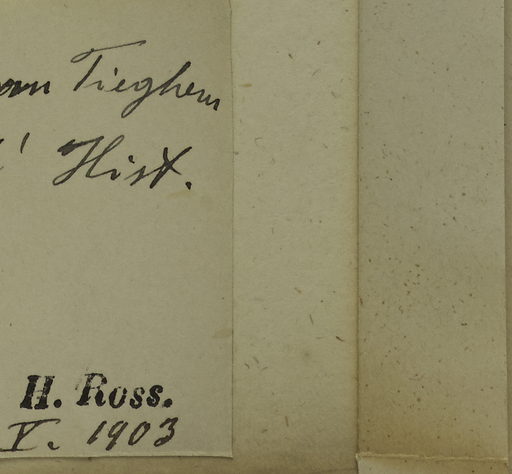 van Tieghem
d' Hist.
H. Ross.
V. 1903